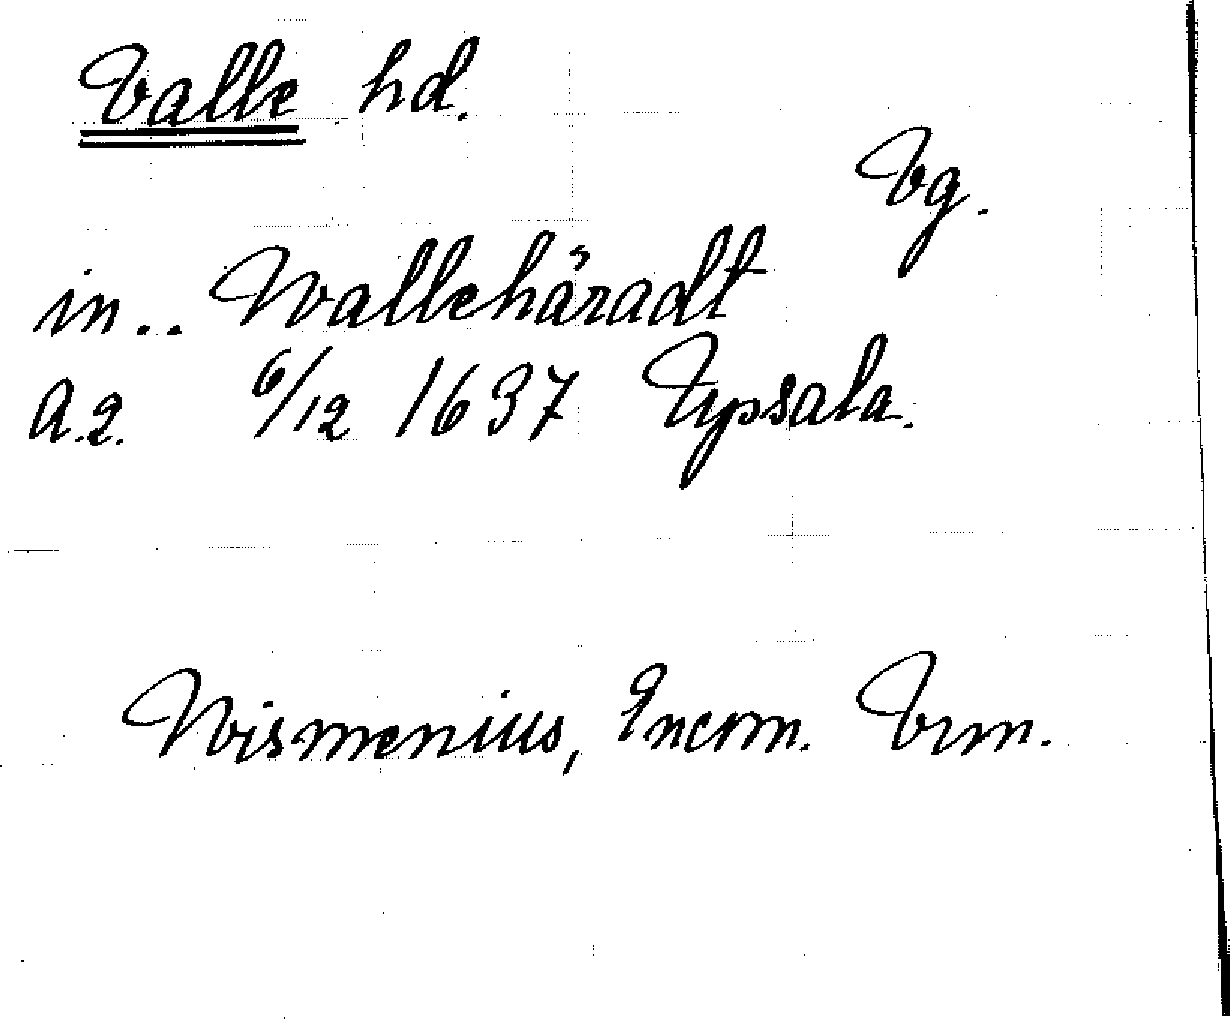 Valle hd.
Vg.
in.. Wallehäradt
a.2. 6/12 1637 Upsala.
Wismenius, Incom. Vrm.